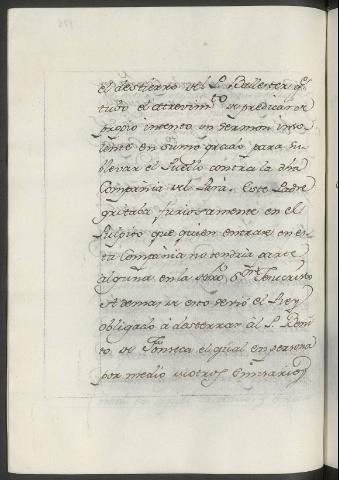 el destierro del P. Ballester q.
tubo el atrevim.to de predicar de
propio intento un sermon inso
lente en sumo grado, para su
blevar el Pueblo contra la dha
Compañia del Pará. Este Padre
gritaba furiosamente en el
Pulpito que quien entrase en es
ta Compañia no tendria parte
alguna en la de N. S.r Jesucristo
A demas de esto se vió el Rey
obligado á desterrar al P. Beni
to de Fonseca el qual en persona
por medio de otros Emisarios